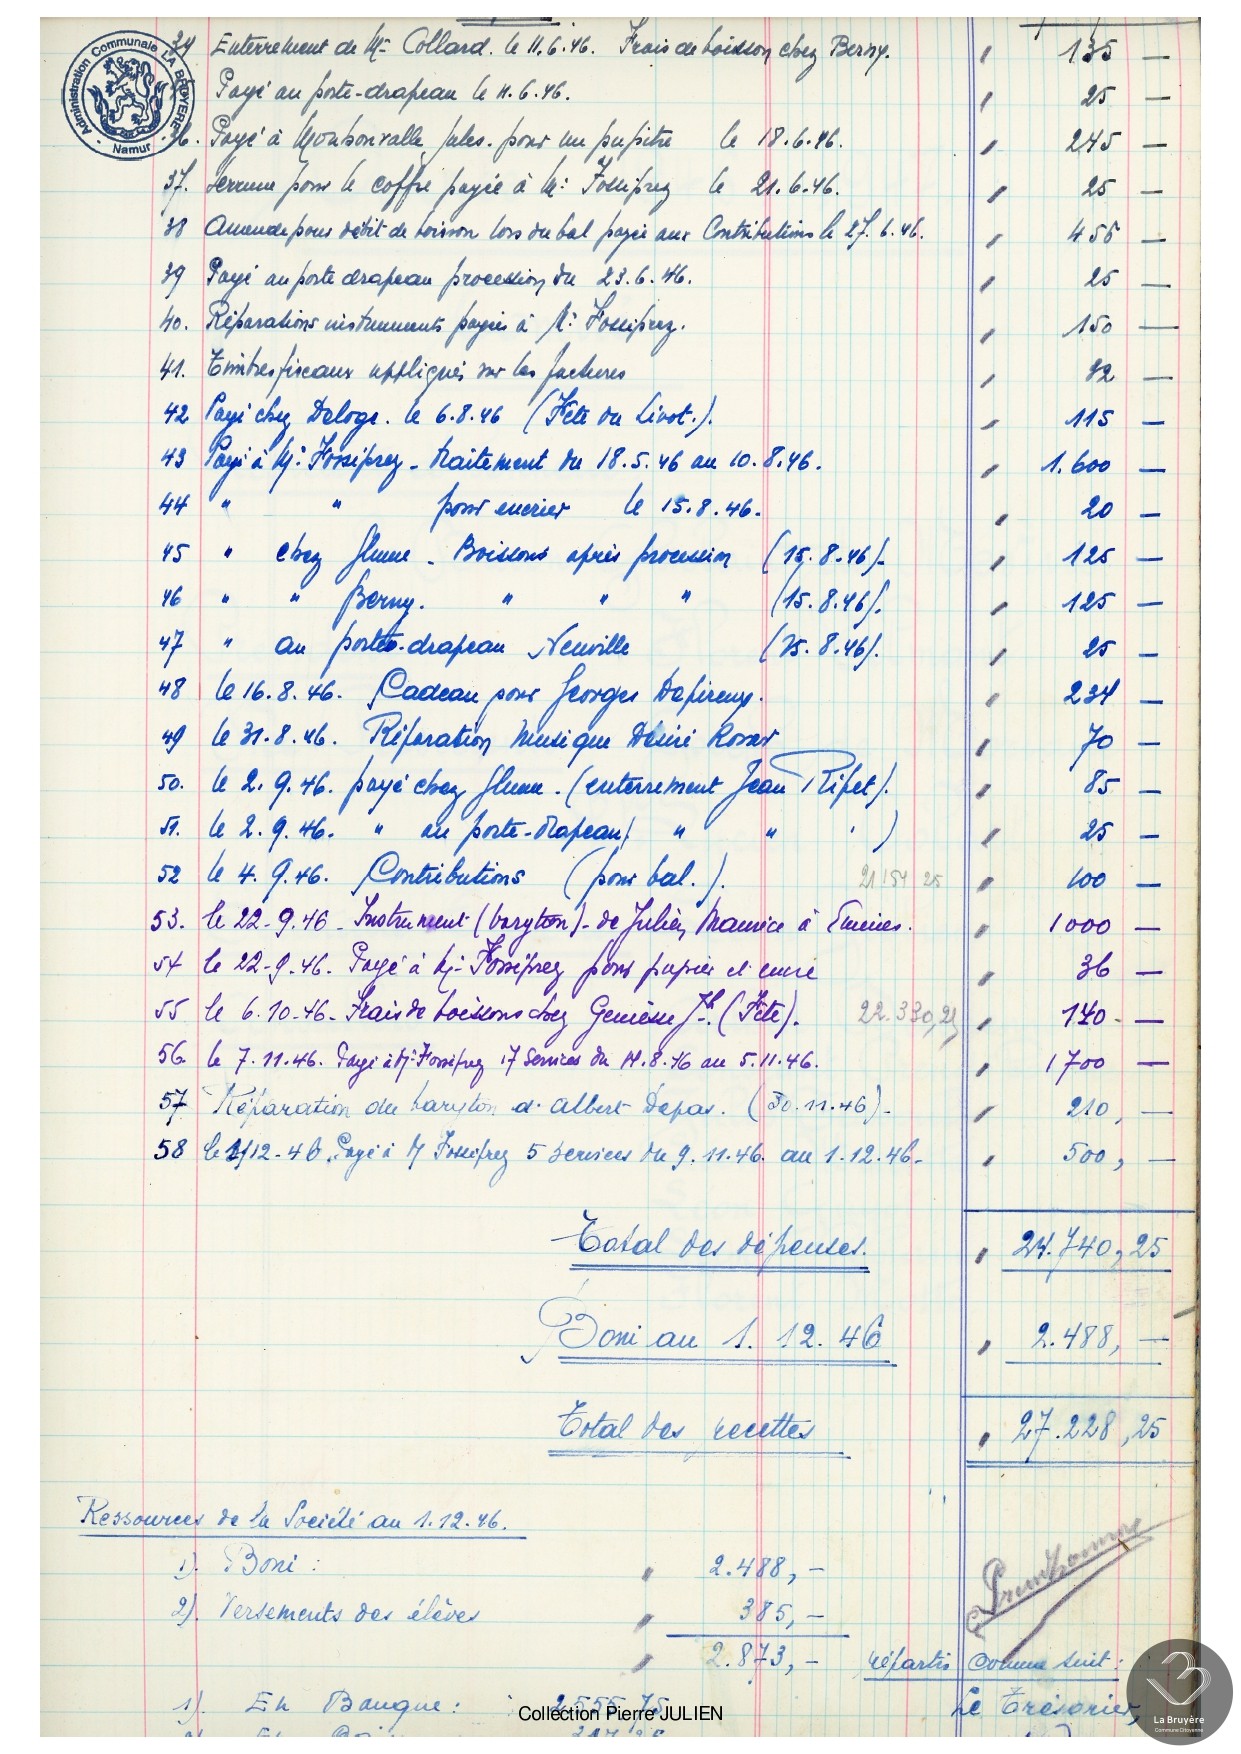 Administration Communale LA BRUYERE
- Namur -
34 Enterrement de Mr Collard. le 11.6.46. Frais de boisson chez Berny. 135 —
Payé au porte-drapeau le 11.6.46. 25 —
36. Payé à Jules. pour un pupitre le 18.6.46. 245 —
37. Serrure pour le coffre payée à Mr Fossiprez le 21.6.46. 25 —
38 Amende pour débit de boisson lors du bal payée aux Contributions le 27.6.46. 455 —
39 Payé au porte drapeau procession du 23.6.46. 25 —
40. Réparations instruments payées à Mr Fossiprez. 150 —
41. Timbres fiscaux appliqués sur les factures 92 —
42 Payé chez Deloge. le 6.8.46 (Fête du Livot.). 115 —
43 Payé à Mr Fossiprez - traitement du 18.5.46 au 10.8.46. 1.600 —
44 " " pour encrier le 15.8.46. 20 —
45 " chez - Boissons après procession (15.8.46)- 125 —
46 " " Berny. " " " (15.8.46). 125 —
47 " au porte-drapeau Neuville (15.8.46). 25 —
48 le 16.8.46. Cadeau pour Georges 234 —
49 le 31.8.46. Réparation Musique Désiré 70 —
50. le 2.9.46. payé chez . (enterrement Jean Ripet). 85 —
51. le 2.9.46. " au porte-drapeau( " " " ) 25 —
52 le 4.9.46. Contributions (pour bal.). 21 154 25 100 —
53. le 22-9.46 - Instrument (baryton) - de Julien Maurice à Emines. 1000 —
54 le 22-9.46. Payé à Mr Fossiprez pour papier et encre 36 —
55 le 6.10.46- Frais de boissons chez Jh. (Fête). 22.330,25 170 —
56. le 7.11.46. Payé à Mr Fossiprez 17 Services du 14.8.46 au 5.11.46. 1700 —
57 Réparation du baryton d'Albert Depas. (30.11.46)- 210, —
58 le 1/12-46. Payé à M Fossiprez 5 services du 9.11.46. au 1.12.46- 500, —
Total des dépenses. 24.740,25
Boni au 1.12.46 2.488, —
Total des recettes 27.228,25
Ressources de la Société au 1.12.46.
1). Boni : 2.488,—
2). Versements des élèves 385,—
2.873,— répartis comme suit :
Prudhomme
1). En Banque : 2555,75 Le Trésorier,
Collection Pierre JULIEN
La Bruyère
Commune Citoyenne